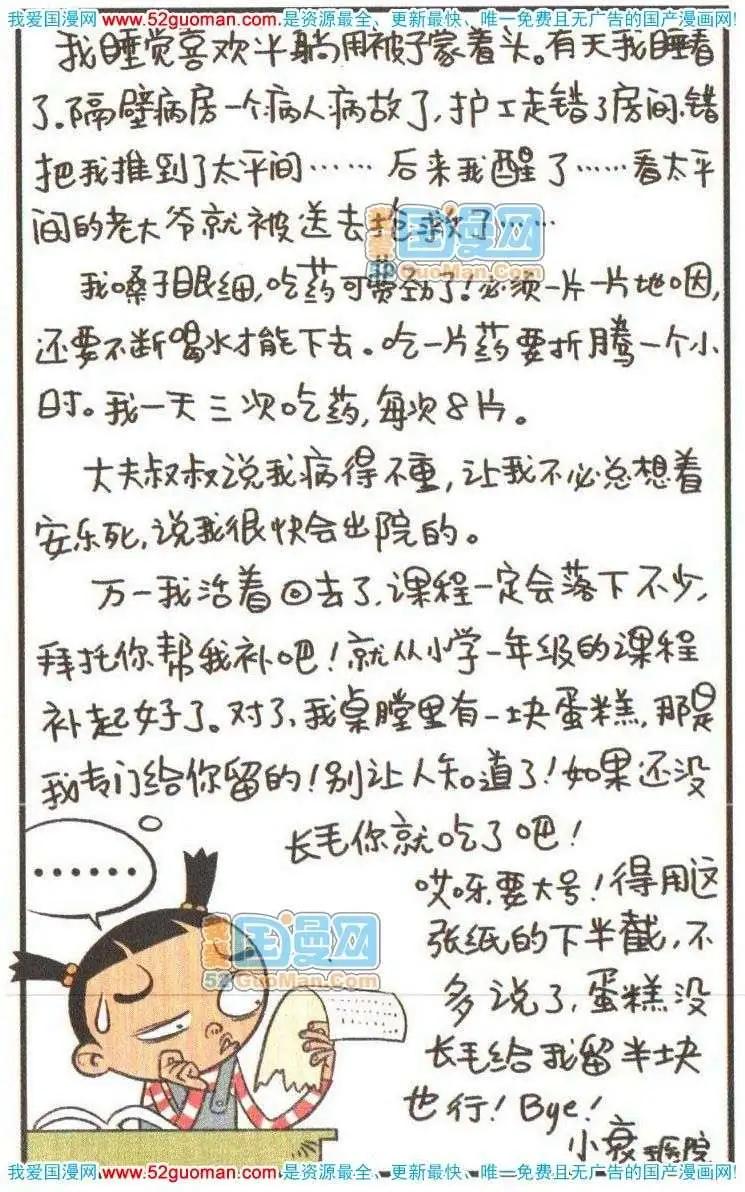 我爱国漫网www.52guoman.com是资源最全、更新最快、唯一免费且无广告的国产漫画网!
我睡觉喜欢半躺用被子蒙着头。有天我睡着
了.隔壁病房一个病人病故了,护工走错了房间.错
把我推到了太平间…… 后来我醒了……看太平
间的老大爷就被送去抢救了……
国漫网
52GuoMan.Com
我嗓子眼细,吃药可费劲了!必须一片一片地咽,
还要不断喝水才能下去。吃一片药要折腾一个小
时。我一天三次吃药,每次8片。
大夫叔叔说我病得不重,让我不必总想着
安乐死,说我很快会出院的。
万一我活着回去了,课程一定会落下不少,
拜托你帮我补吧!就从小学一年级的课程
补起好了。对了,我桌膛里有一块蛋糕,那是
我专门给你留的!别让人知道了!如果还没
长毛你就吃了吧!
······
哎呀要大号!得用这
张纸的下半截,不
多说了,蛋糕没
长毛给我留半块
也行!Bye!
小衰于医院
国漫网
52GuoMan.Com
我爱国漫网www.52guoman.com是资源最全、更新最快、唯一免费且无广告的国产漫画网!